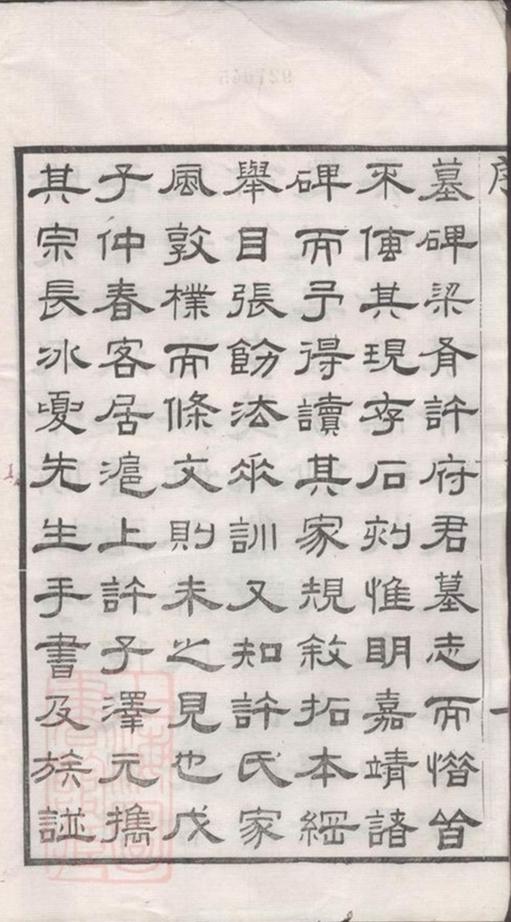 序
一
墓碑梁許府君墓志而惜皆
不傳其現存石刻惟明嘉靖諸
碑而予得讀其家規敘拓本綱
舉目張飭法垂訓又知許氏家
風敦樸而條文則未之見也戊
子仲春客居滬上許子澤元攜
其宗長冰先生手書及族諩